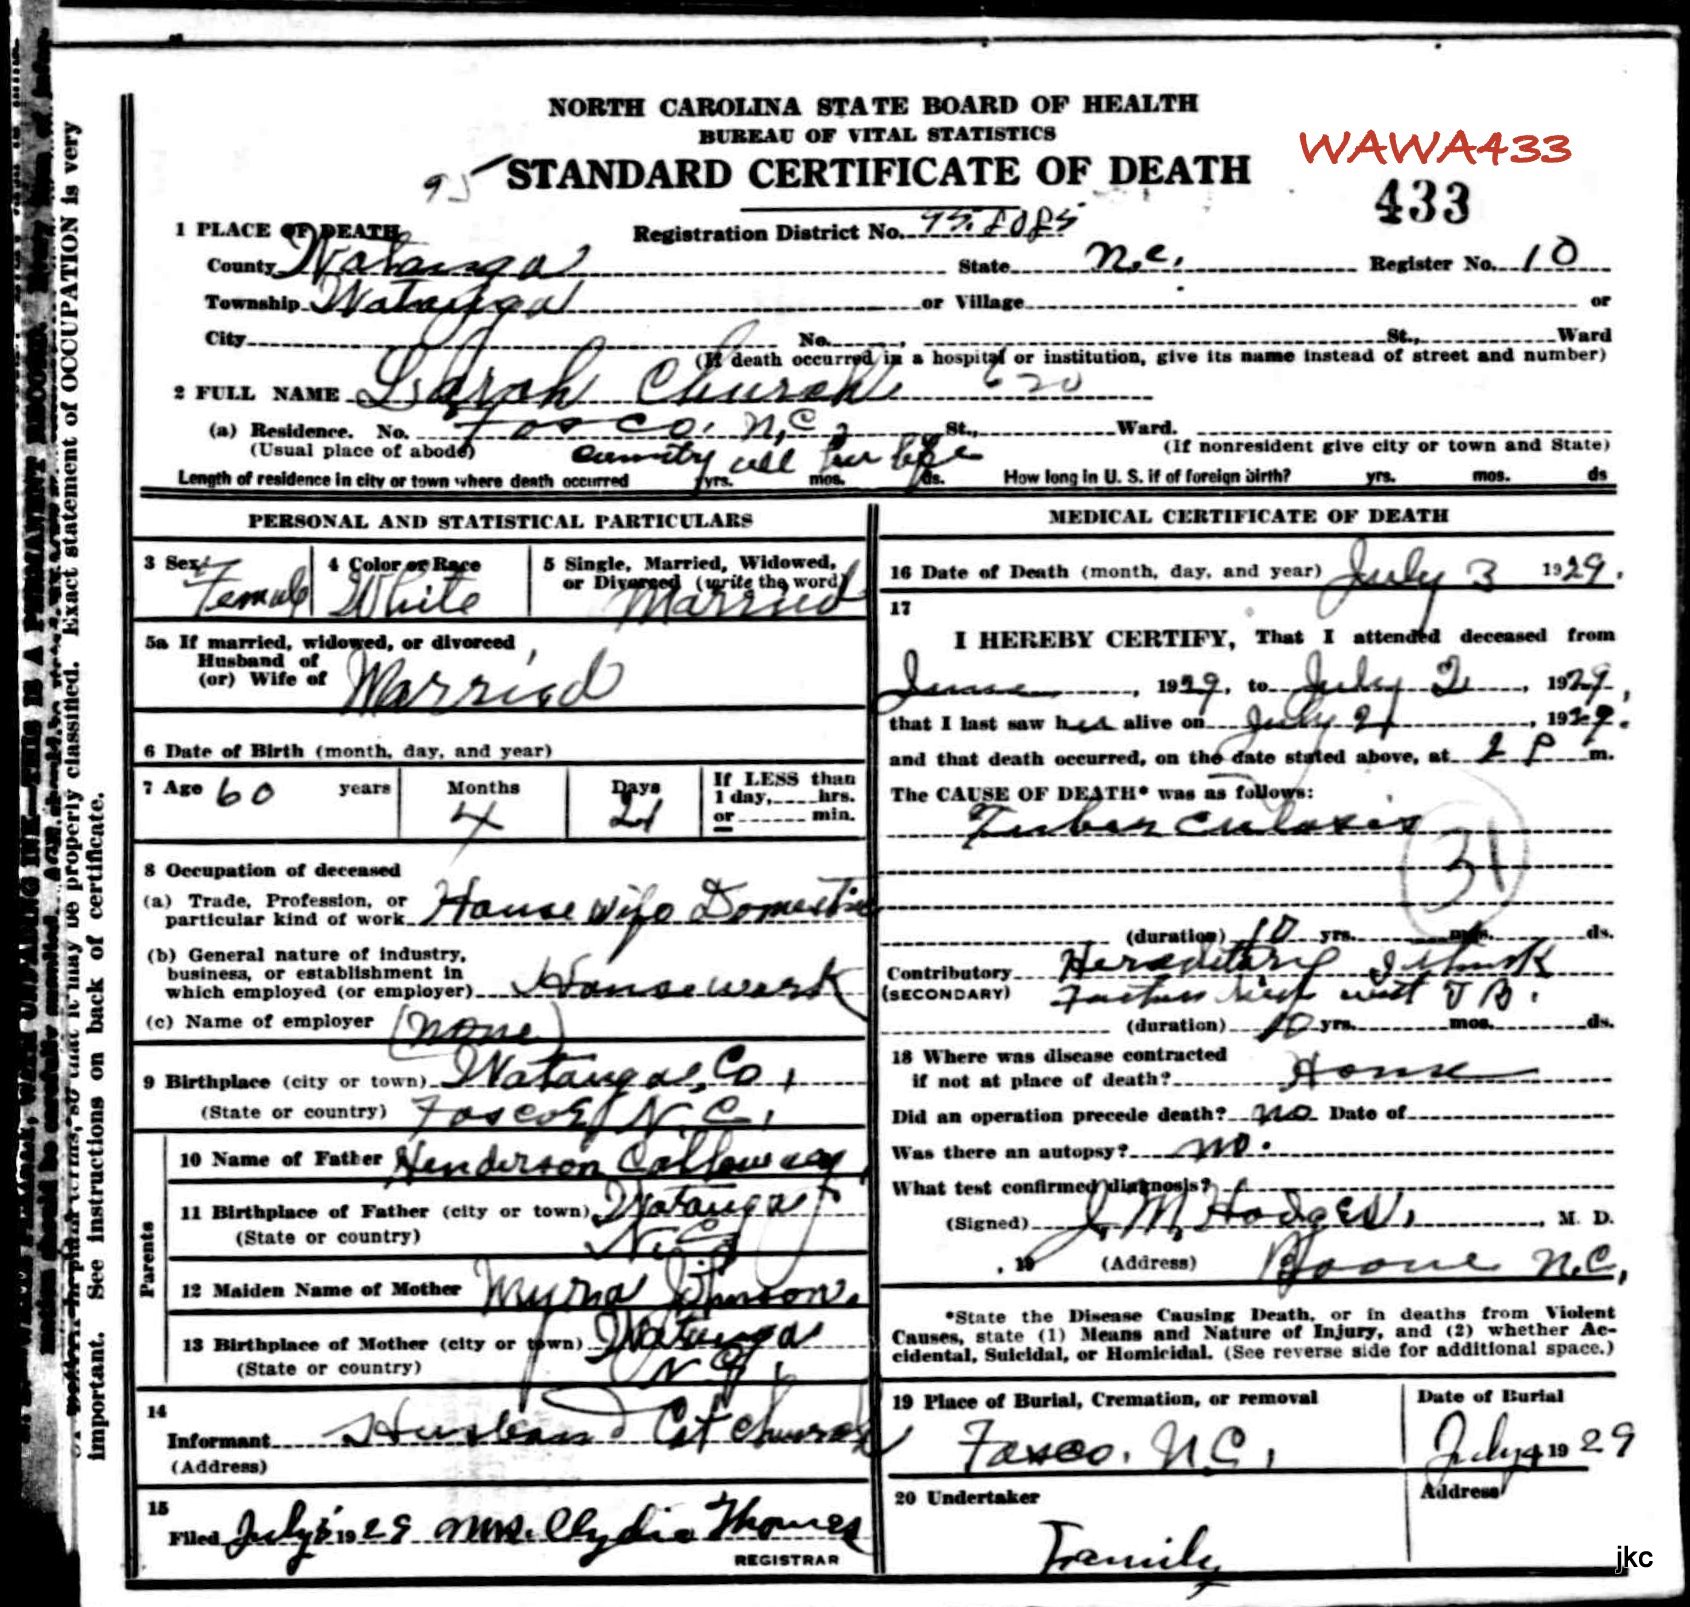 NORTH CAROLINA STATE BOARD OF HEALTH
BUREAU OF VITAL STATISTICS
WAWA433
95 STANDARD CERTIFICATE OF DEATH
433
1 PLACE OF DEATH
Registration District No.
County Watauga State N.C. Register No. 10
Township Watauga or Village or
City No. St., Ward
(If death occurred in a hospital or institution, give its name instead of street and number)
2 FULL NAME Sarah Church
(a) Residence. No. Fosco. N.C. St., Ward.
(Usual place of abode) (If nonresident give city or town and State)
country all her life
Length of residence in city or town where death occurred yrs. mos. ds. How long in U. S. if of foreign birth? yrs. mos. ds
PERSONAL AND STATISTICAL PARTICULARS
3 Sex Female
4 Color or Race White
5 Single, Married, Widowed,
or Divorced (write the word)
Married
5a If married, widowed, or divorced
Husband of
(or) Wife of Married
6 Date of Birth (month, day, and year)
7 Age 60 years Months 4 Days 21 If LESS than
1 day, hrs.
or min.
8 Occupation of deceased
(a) Trade, Profession, or
particular kind of work House wife Domestic
(b) General nature of industry,
business, or establishment in
which employed (or employer) House work
(c) Name of employer (none)
9 Birthplace (city or town) Watauga Co,
(State or country) Foscoe N.C.,
Parents
10 Name of Father Henderson Calloway
11 Birthplace of Father (city or town) Watauga
(State or country) N.C.
12 Maiden Name of Mother Myrna Johnson.
13 Birthplace of Mother (city or town) Watauga
(State or country) N.C.
14
Informant Husband Cot Church
(Address)
15
Filed July 5 1929 Mrs. Clydia Thomas
REGISTRAR
MEDICAL CERTIFICATE OF DEATH
16 Date of Death (month, day, and year) July 3 1929.
17
I HEREBY CERTIFY, That I attended deceased from
June, 1929, to July 2, 1929,
that I last saw her alive on July 2, 1929.
and that death occurred, on the date stated above, at 2 P m.
The CAUSE OF DEATH* was as follows:
Tuberculosis
31
(duration) 10 yrs. mos. ds.
Contributory Hereditary I think
(SECONDARY) T B.
(duration) 10 yrs. mos. ds.
18 Where was disease contracted
if not at place of death? Home
Did an operation precede death? no Date of
Was there an autopsy? no.
What test confirmed diagnosis?
(Signed) J. M. Hodges, M. D.
, 19 (Address) Boone N.C,
*State the Disease Causing Death, or in deaths from Violent
Causes, state (1) Means and Nature of Injury, and (2) whether Ac-
cidental, Suicidal, or Homicidal. (See reverse side for additional space.)
19 Place of Burial, Cremation, or removal
Fosco. N.C.,
Date of Burial
July 4 1929
20 Undertaker
Family
Address
important. See instructions on back of certificate.
jkc